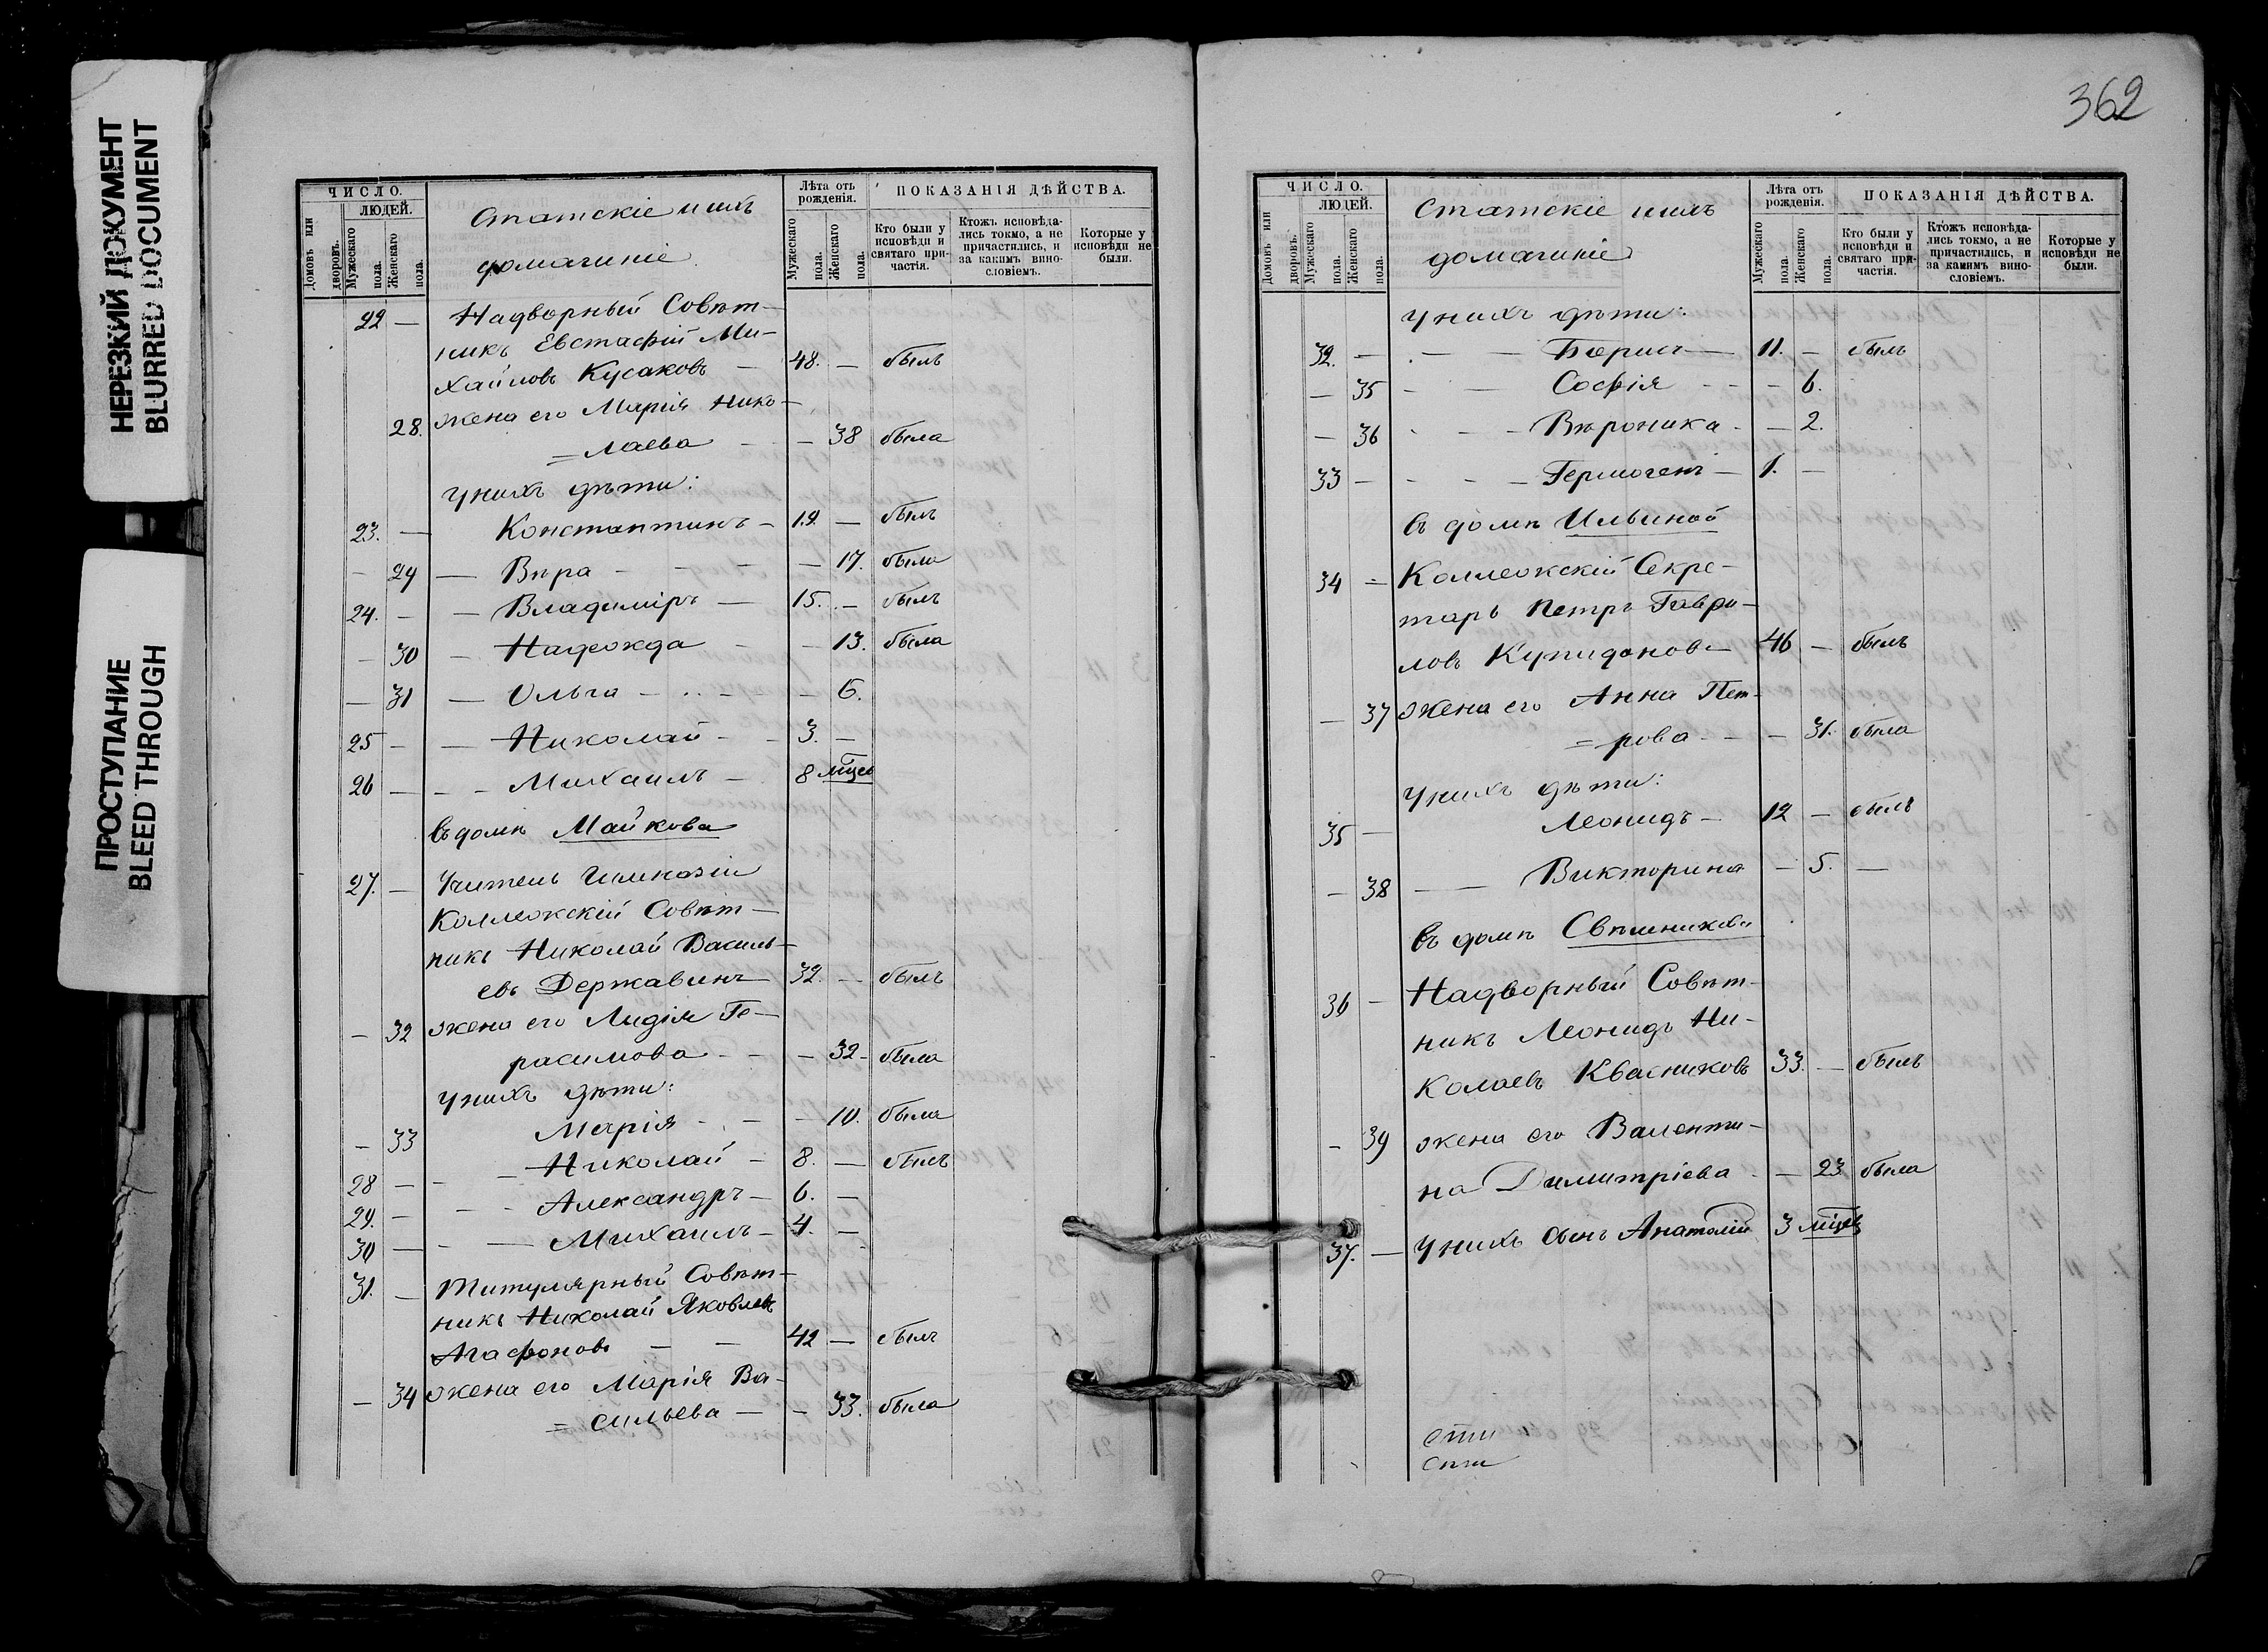 НЕРЕЗКИЙ ДОКУМЕНТ
BLURRED DOCUMENT
ПРОСТУПАНИЕ
BLEED THROUGH
ЧИСЛО.
ЛЮДЕЙ.
Домовъ или дворовъ.
Мужескаго пола.
Женскаго пола.
Статскіе и ихъ
домашніе
Лѣта отъ рожденія.
Мужескаго пола.
Женскаго пола.
ПОКАЗАНІЯ ДѢЙСТВА.
Кто были у исповѣди и святаго причастія.
Ктожъ исповѣдались токмо, а не причастились, и за какимъ винословіемъ.
Которые у исповѣди не были.
22 — Надворный Совѣт-
никъ Евстафій Ми-
хайловъ Кусаковъ — 48. — былъ
28. жена его Марія Нико-
=лаева — — 38 была
У нихъ дѣти:
23. — Константинъ — 19. — былъ
— 29 — Вѣра — — — 17. была
24. — — Владиміръ — 15. — былъ
— 30 — Надежда — 13. была
— 31 — Ольга — — 6.
25 — — Николай — 3. —
26 — — Михаилъ — 8 мѣцев
въ домѣ Майкова
27. — Учитель Гимназіи
Коллежскій Совѣт-
никъ Николай Василь-
евъ Державинъ 32. — былъ
— 32 жена его Лидія Ге-
расимова — — 32 — была
У нихъ дѣти:
— 33 Марія — — 10. была
28 — — Николай — 8. — былъ
29. — — Александръ — 6. —
30 — — Михаилъ — 4. —
31. — Титулярный Совѣт-
никъ Николай Яковлевъ
Агафоновъ — — 42 — былъ
— 34 жена его Марія Ва-
=сильева — — 33. была
362
ЧИСЛО.
ЛЮДЕЙ.
Домовъ или дворовъ.
Мужескаго пола.
Женскаго пола.
Статскіе и ихъ
домашніе
Лѣта отъ рожденія.
Мужескаго пола.
Женскаго пола.
ПОКАЗАНІЯ ДѢЙСТВА.
Кто были у исповѣди и святаго причастія.
Ктожъ исповѣдались токмо, а не причастились, и за какимъ винословіемъ.
Которые у исповѣди не были.
У нихъ дѣти:
32. — — — Борисъ — 11. — былъ
— 35 — — Софія — — 6.
— 36 — — Вѣроника — — 2.
33 — — — Гермогенъ — 1. —
въ домѣ Ильиной
34 — Коллежскій Секре-
тарь Петръ Гаври-
ловъ Купидоновъ — 46 — былъ
— 37 жена его Анна Пет-
=рова — — 31. была
У нихъ дѣти:
35 — Леонидъ — 12 — былъ
— 38 — — Викторина — 5. —
въ домѣ Свѣшникова
36 — Надворный Совѣт-
никъ Леонидъ Ни-
колаевъ Квасниковъ 33. — былъ
— 39 жена его Валенти-
на Димитріева — — 23 была
37. — У нихъ сынъ Анатолій 3 мѣцев